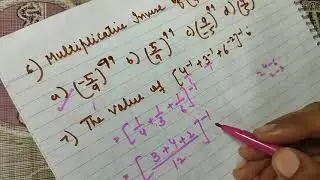 6) Multiplicatic Inverse of (
a) (-5/9)^99 b) (5/9)^99 c) (9/-5) d) (
7) The value of [4^-1 + 3^-1 + 6^-2]^-1 is
= [1/4 + 1/3 + 1/6]^-1
= [3+4+2/12]^-1